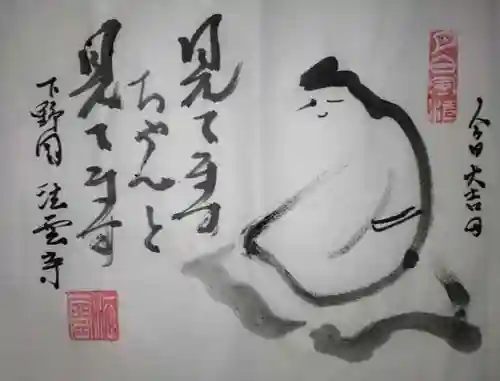 今日大吉日
見てます
ちゃんと
見てます
下野国 法雲寺